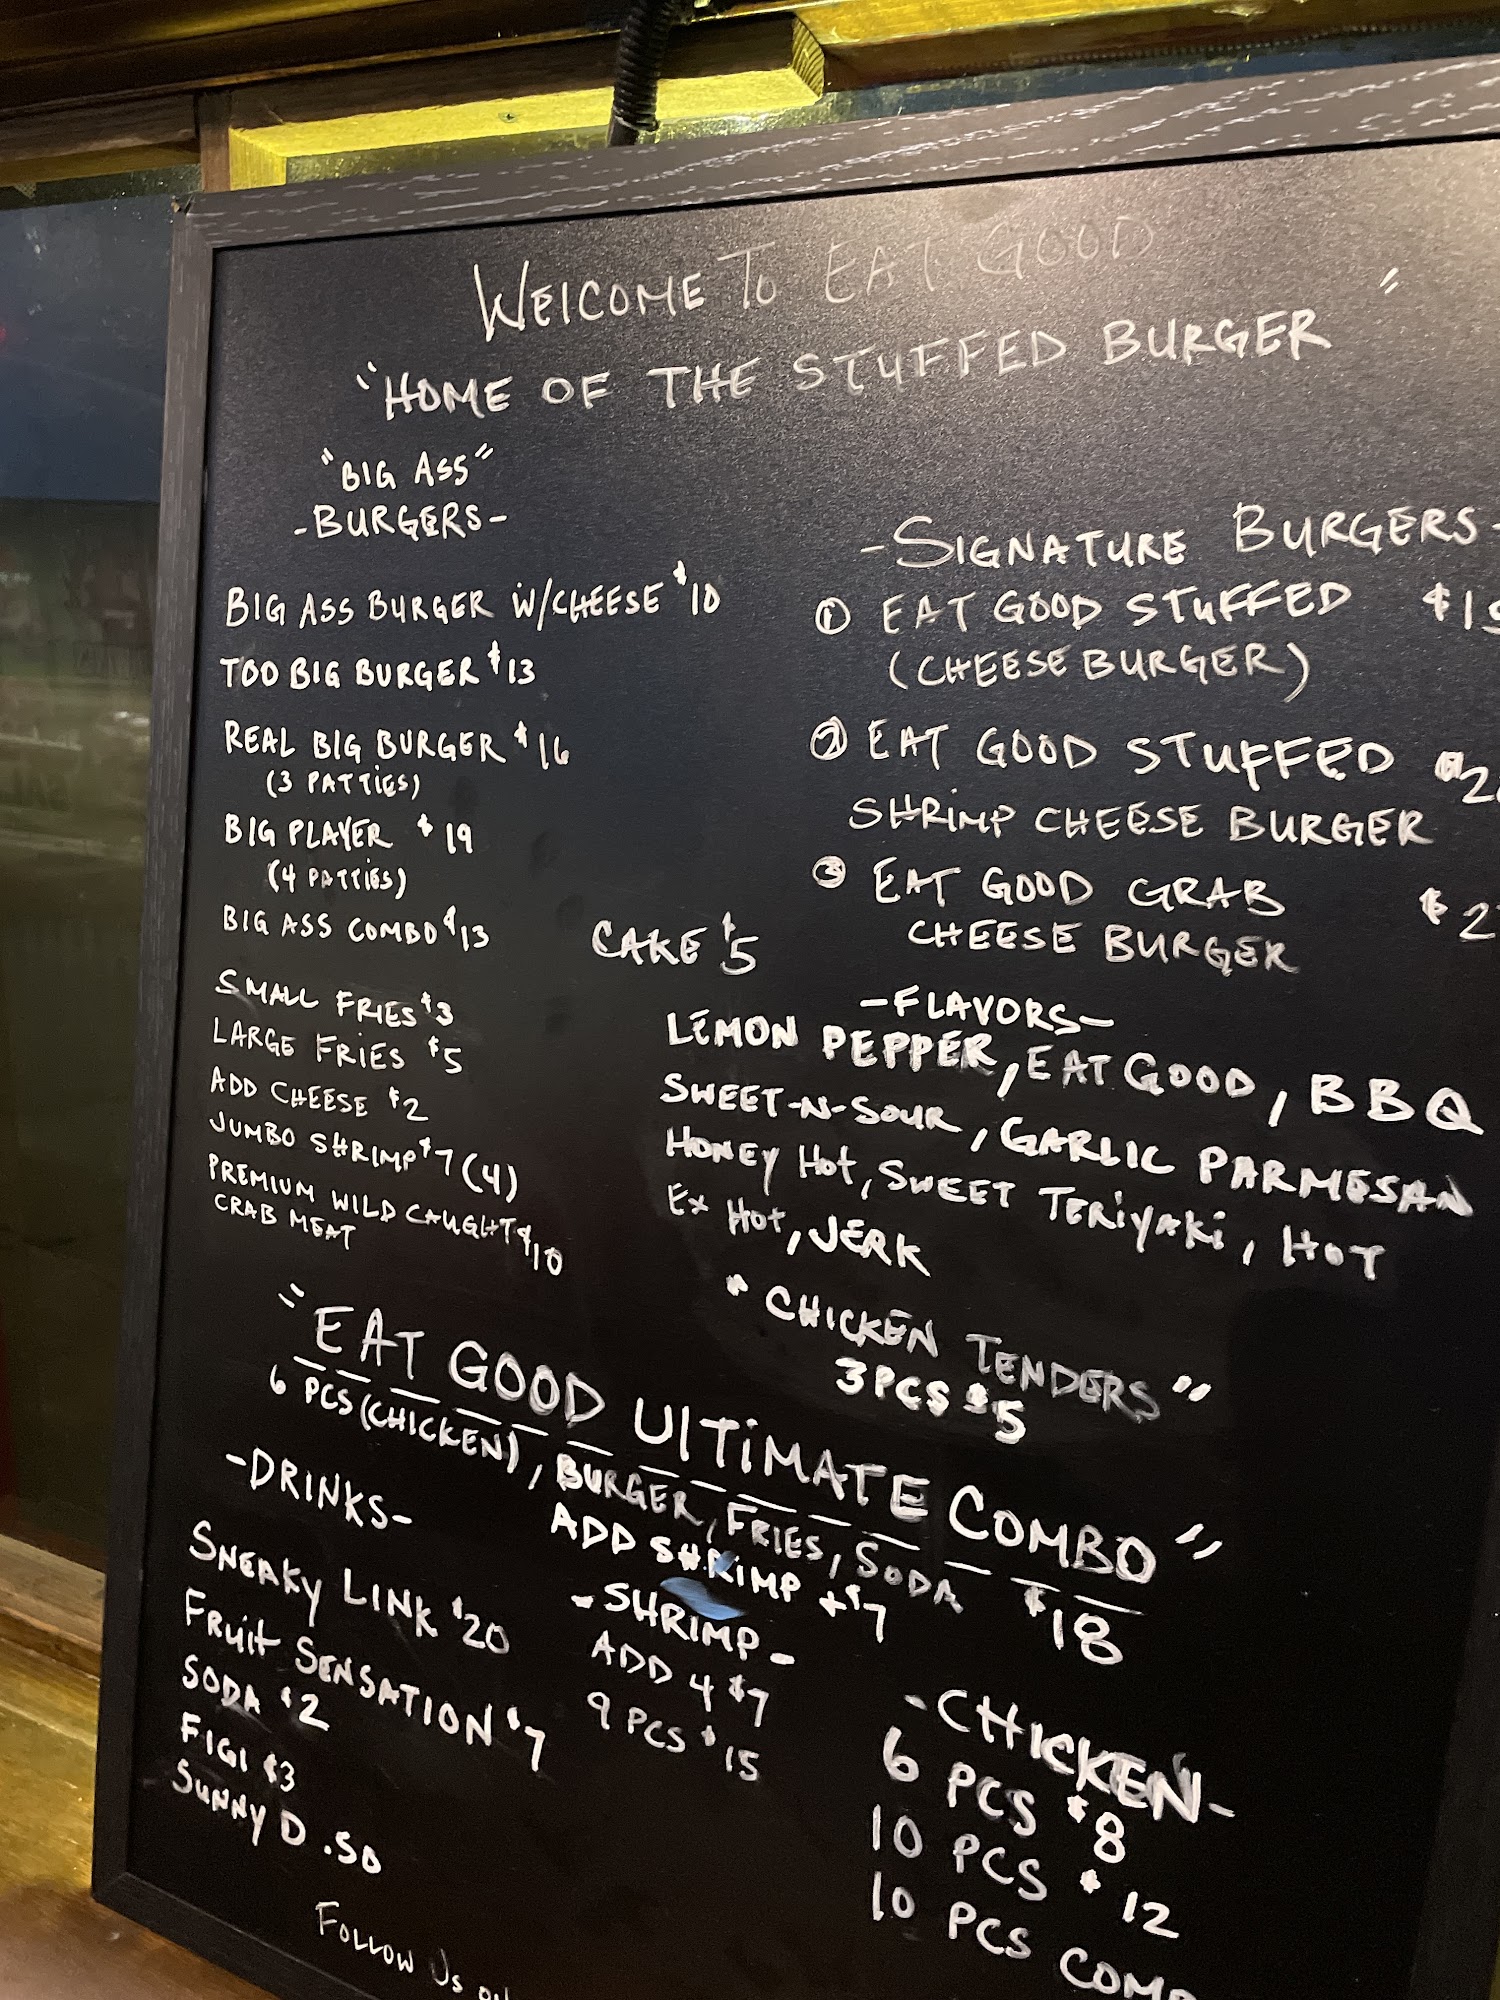 WELCOME TO EAT GOOD
"HOME OF THE STUFFED BURGER"
"BIG ASS"
-BURGERS-
BIG ASS BURGER W/CHEESE $10
TOO BIG BURGER $13
REAL BIG BURGER $16
(3 PATTIES)
BIG PLAYER $19
(4 PATTIES)
BIG ASS COMBO $13
CAKE $5
SMALL FRIES $3
LARGE FRIES $5
ADD CHEESE $2
JUMBO SHRIMP $7 (4)
PREMIUM WILD CAUGHT $10
CRAB MEAT
-SIGNATURE BURGERS-
① EAT GOOD STUFFED
(CHEESE BURGER)
② EAT GOOD STUFFED
SHRIMP CHEESE BURGER
③ EAT GOOD CRAB
CHEESE BURGER
-FLAVORS-
LEMON PEPPER, EAT GOOD, BBQ
SWEET-N-SOUR, GARLIC PARMESAN
HONEY HOT, SWEET TERIYAKI, HOT
EX HOT, JERK
"CHICKEN TENDERS"
3PCS $5
"EAT GOOD ULTIMATE COMBO"
6 PCS (CHICKEN), BURGER, FRIES, SODA $18
ADD SHRIMP +$7
-DRINKS-
SNEAKY LINK $20
FRUIT SENSATION $7
SODA $2
FIGI $3
SUNNY D .50
-SHRIMP-
ADD 4 $7
9 PCS $15
-CHICKEN-
6 PCS $8
10 PCS $12
10 PCS
FOLLOW US